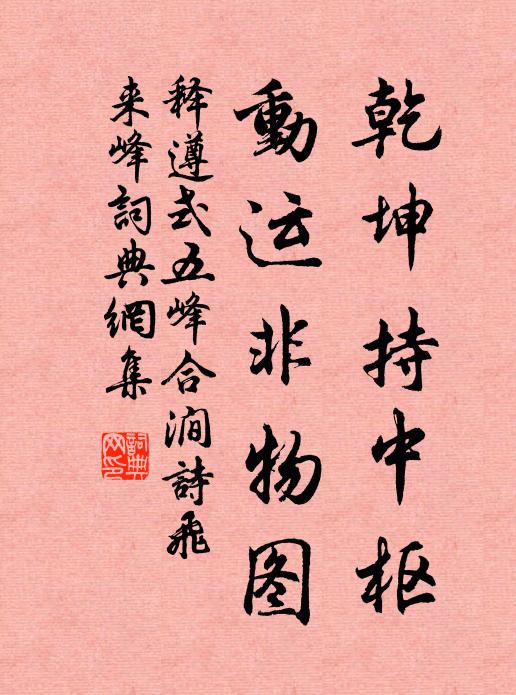 乾坤持中枢
動运非物图
释遵式五峰合涧詩飛
来峰詞典網集
詞典网印